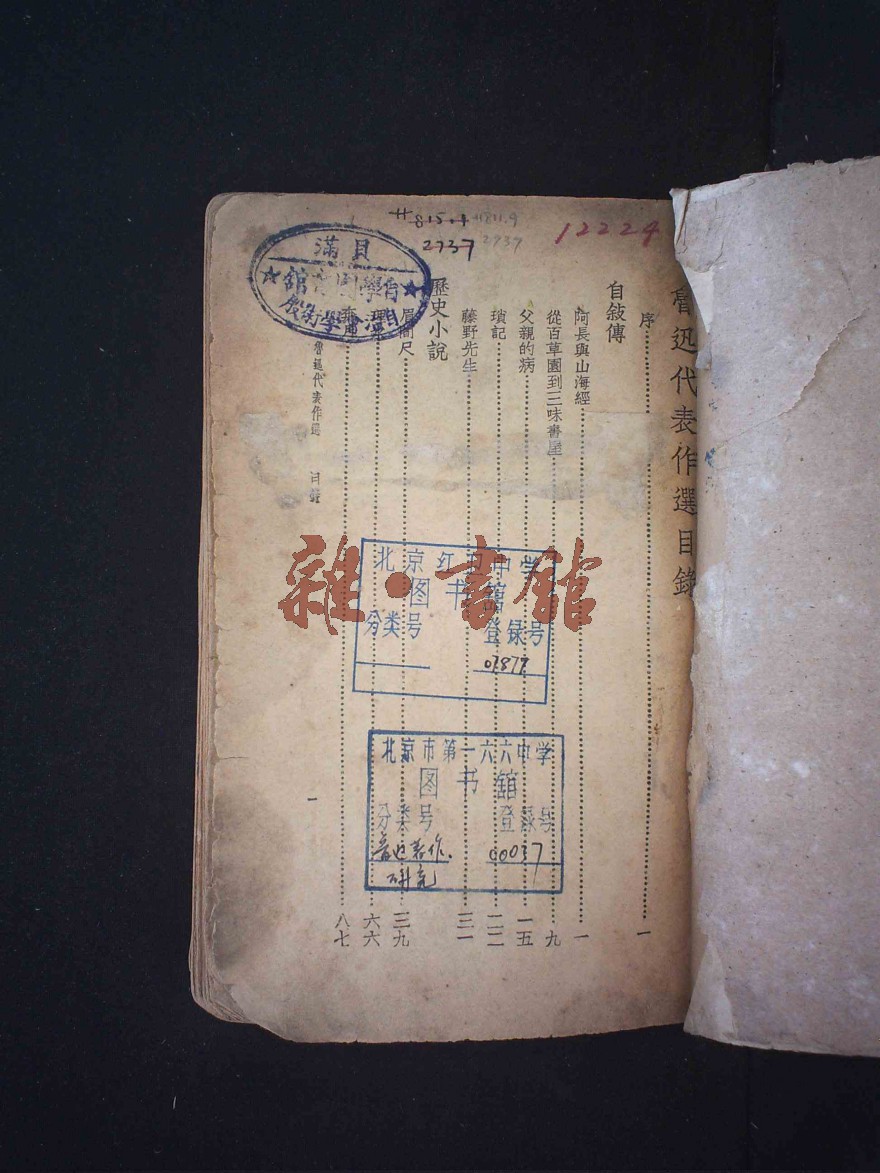 魯迅代表作選目錄
序 一
自敍傳
阿長與山海經 一
從百草園到三味書屋 九
父親的病 一五
瑣記 二二
藤野先生 三一
歷史小說
眉間尺 三九
六六
八七
魯迅代表作選 目錄
一
12224
815.4
2737
811.9
2937
貝滿
北京红 中学
图书舘
分类号 登录号
北京市第一六六中学
图书舘
分类号 登录号
00037
研究
雜·書館